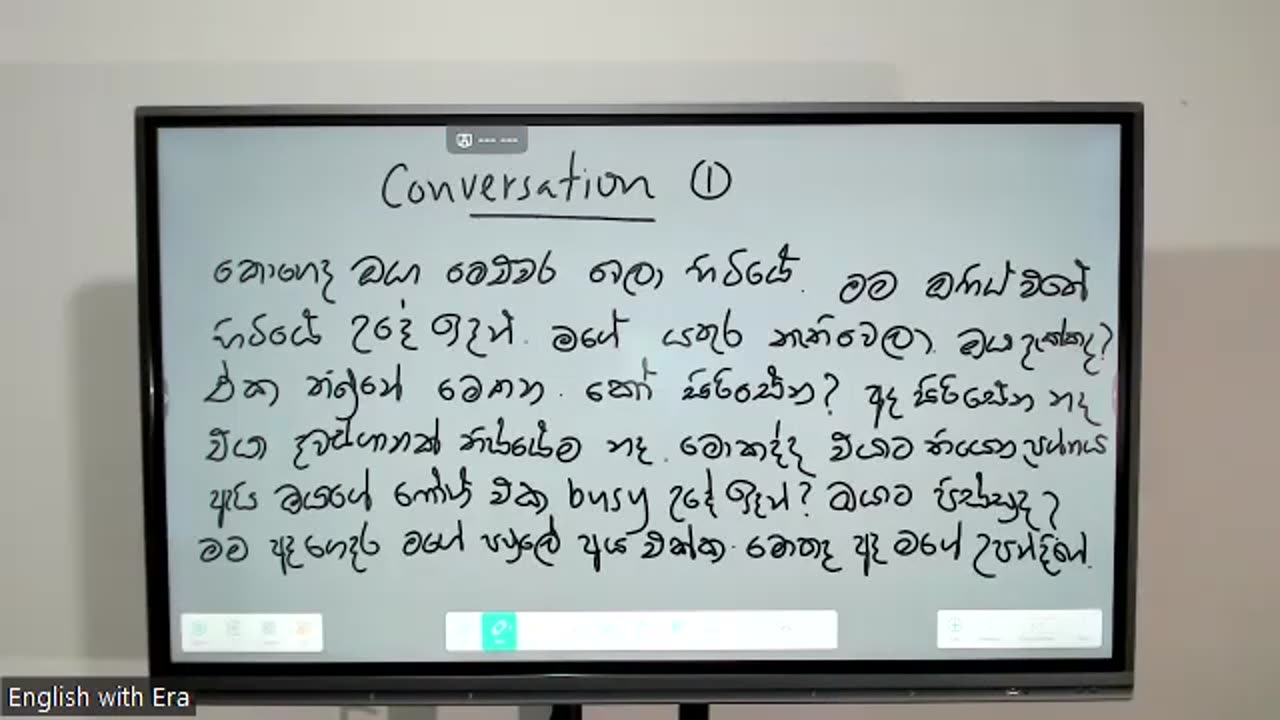 Conversation ①
කොහෙද ඔයා මෙච්චර වෙලා හිටියේ. මම ඔෆිස් එකේ
හිටියේ උදේ ඉදන්. මගේ යතුර නැතිවෙලා. ඔයා දැක්කද?
ඒක තිබුනේ මෙතන. කෝ සිරිසේන? අද සිරිසේන නෑ
එයා දවස්ගානක් හිටියේම නෑ. මොකද්ද එයාට තියෙන ප්‍රශ්නය
ඇයි ඔයාගේ ෆෝන් එක busy උදේ ඉදන්? ඔයාට පිස්සුද?
මම අද ගෙදර මගේ පවුලේ අය එක්ක. මොකද අද මගේ උපන්දිනේ.
English with Era